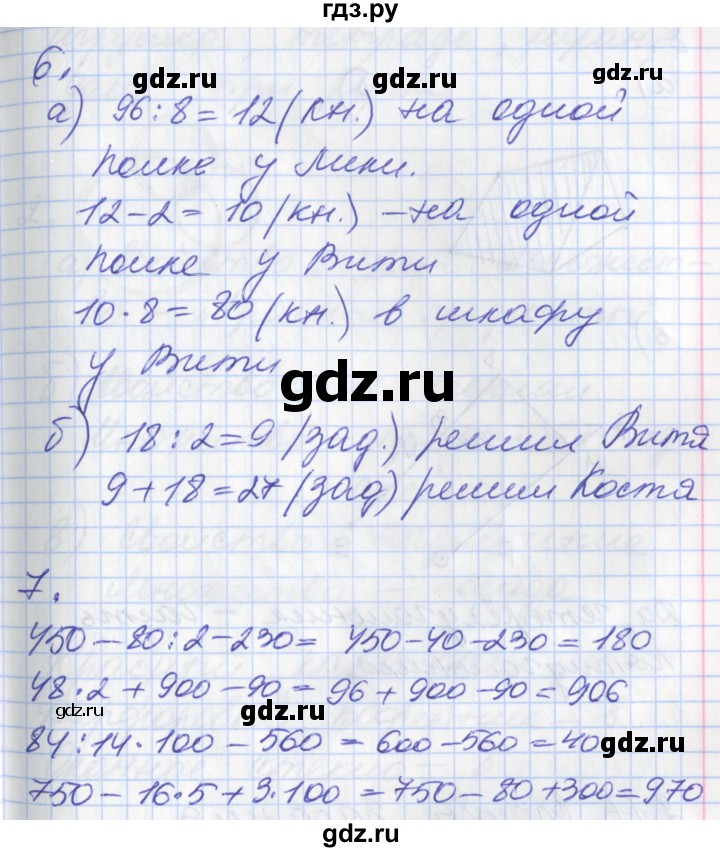 гдз.ру
gdz.ru gdz.ru
6.
а) 96:8=12(кн.) на одной
полке у Лики.
gdz.ru gdz.ru
12-2=10(кн.) – на одной
полке у Вити
10·8=80(кн.) в шкафу
у Вити
gdz.ru
б) 18:2=9 (зад.) решил Витя
9+18=27 (зад) решил Костя
gdz.ru gdz.ru
7.
450-80:2-230= 450-40-230=180
48·2+900-90=96+900-90=906
gdz.ru gdz.ru
84:14·100-560=600-560=40
750-16·5+3·100=750-80+300=970
gdz.ru